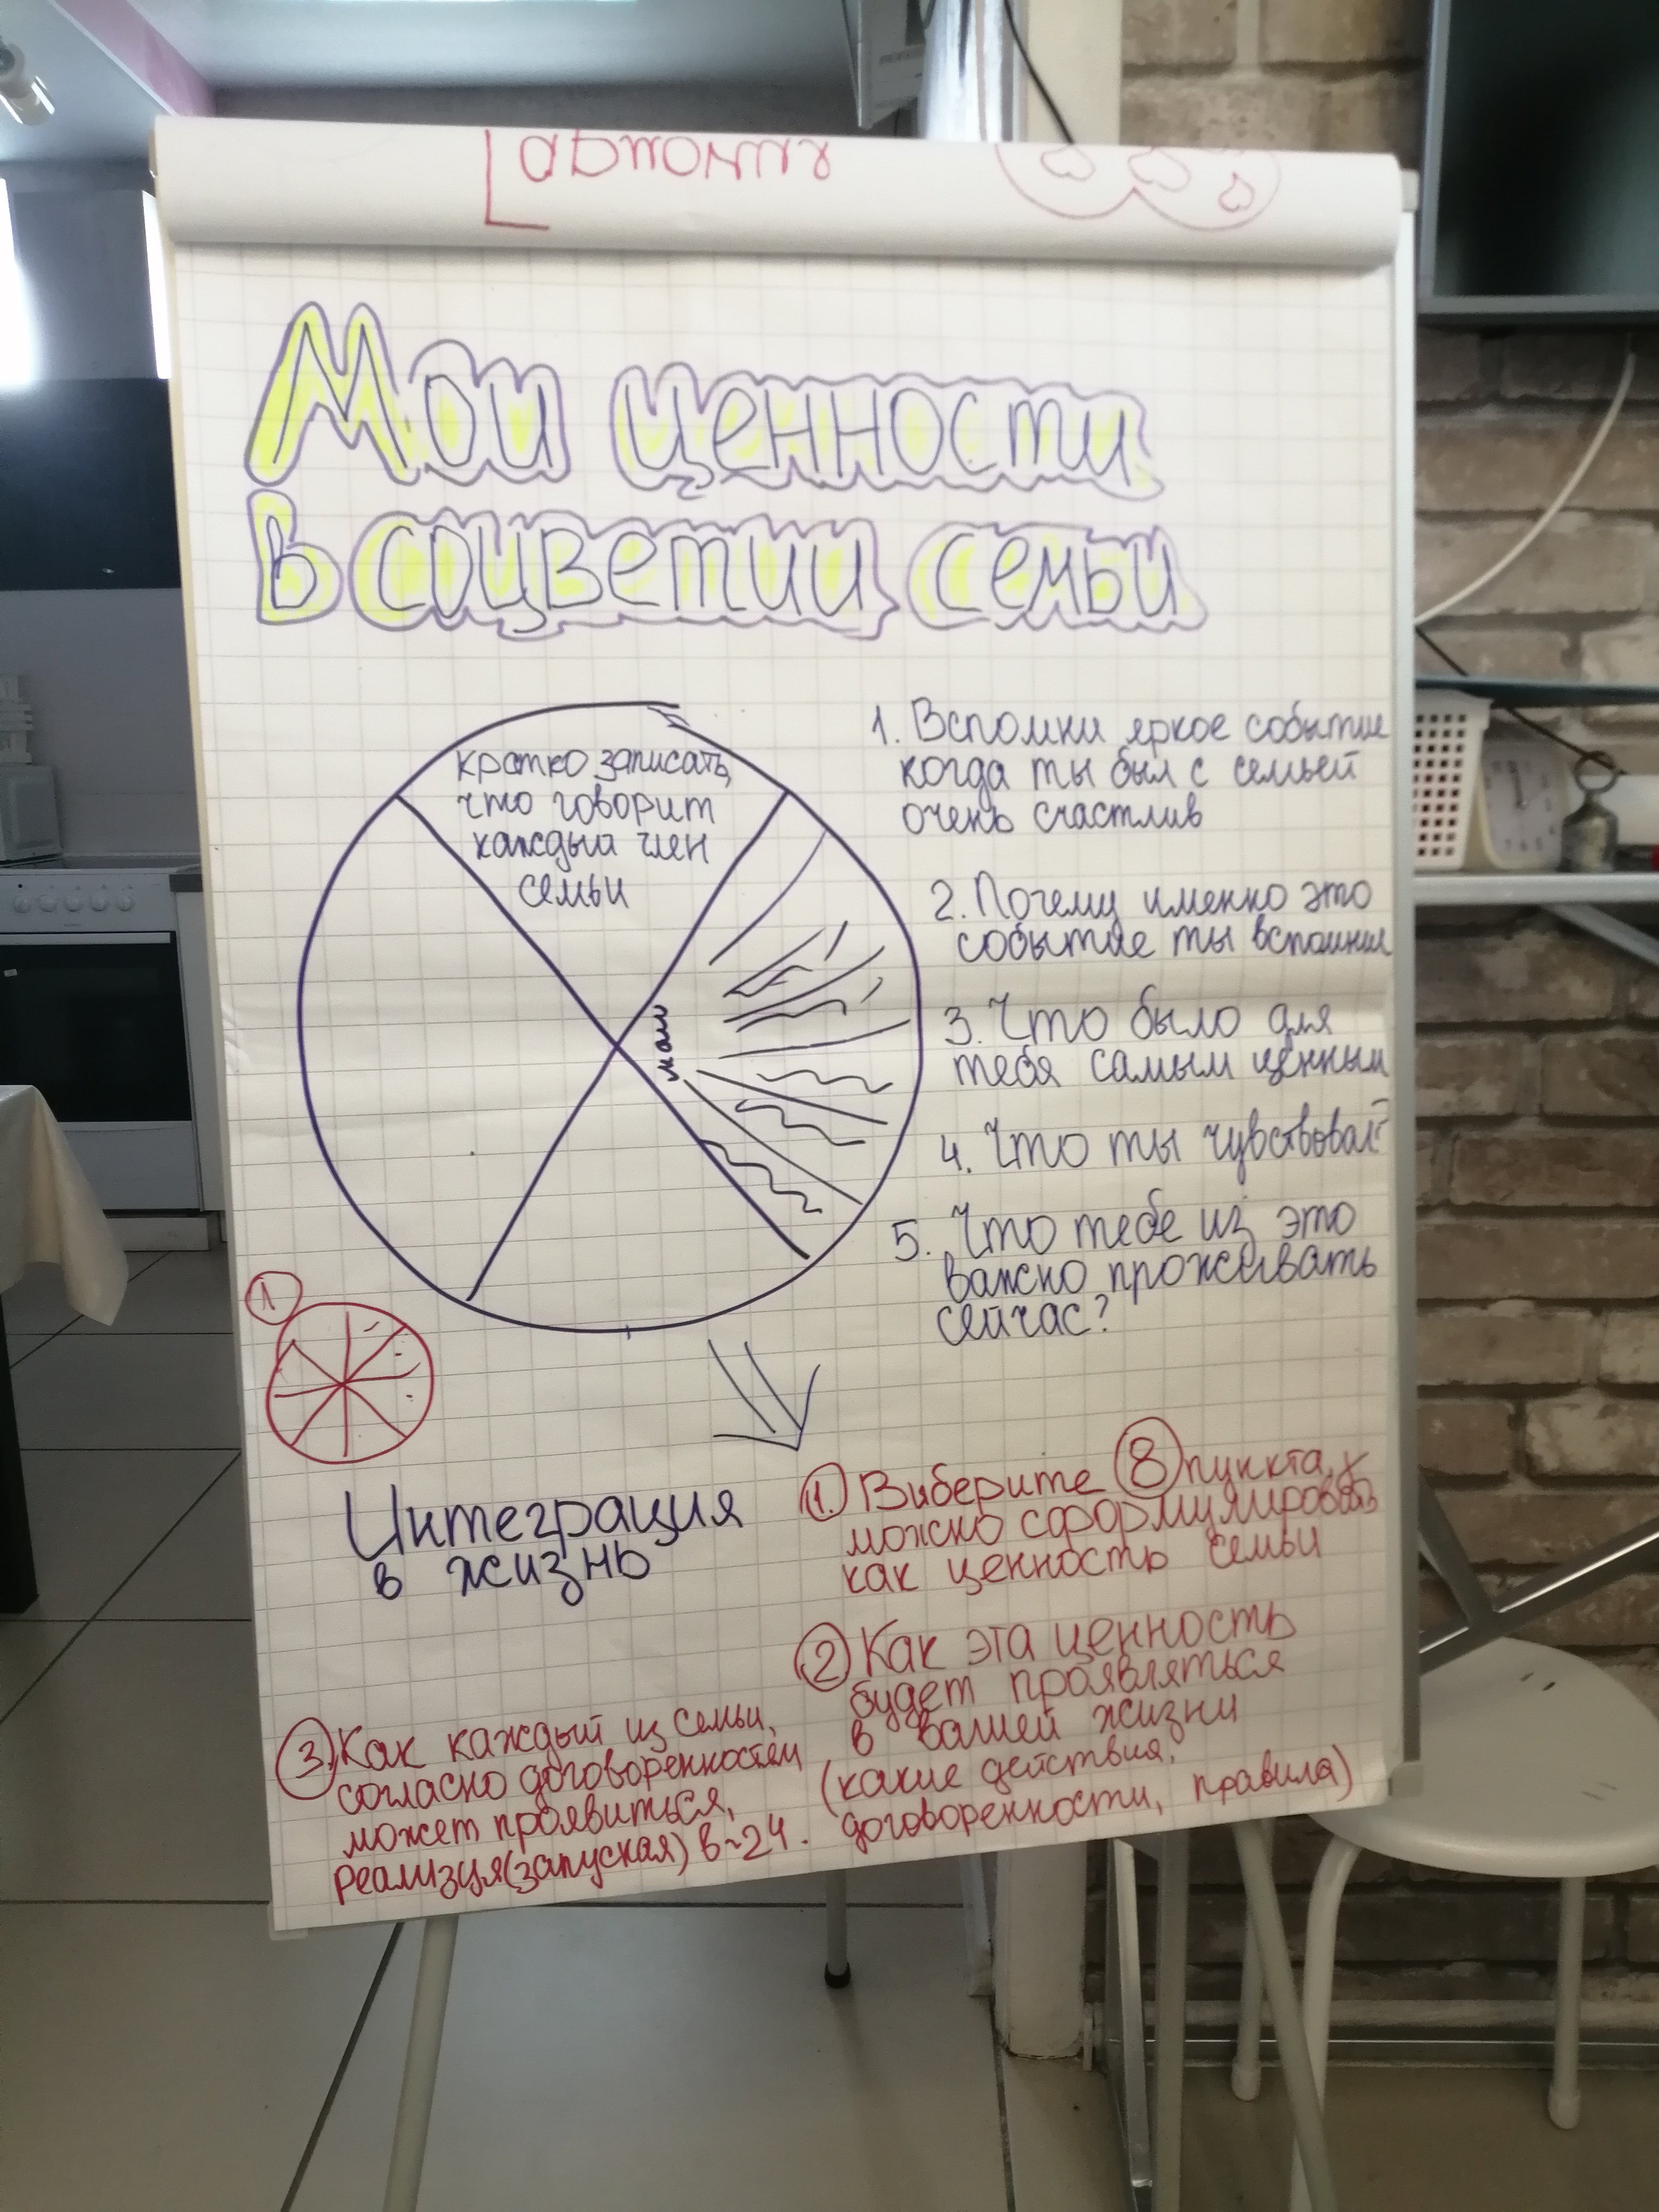 Гармония
Мои ценности
в соцветии семьи
кратко записать,
что говорит
каждый член
семьи
1. Вспомни яркое событие
когда ты был с семьей
очень счастлив
2. Почему именно это
событие ты вспомнил
3. Что было для
тебя самым ценным
4. Что ты чувствовал
5. Что тебе из это
важно проживать
сейчас?
1
Интеграция
в жизнь
1. Выберите 8 пункта,
можно сформулировать
как ценность семьи
2 Как эта ценность
будет проявляться
в вашей жизни
(какие действия,
договоренности, правила)
3. Как каждый из семьи,
согласно договоренностям
может проявиться,
реализуя (запуская) в ~24.